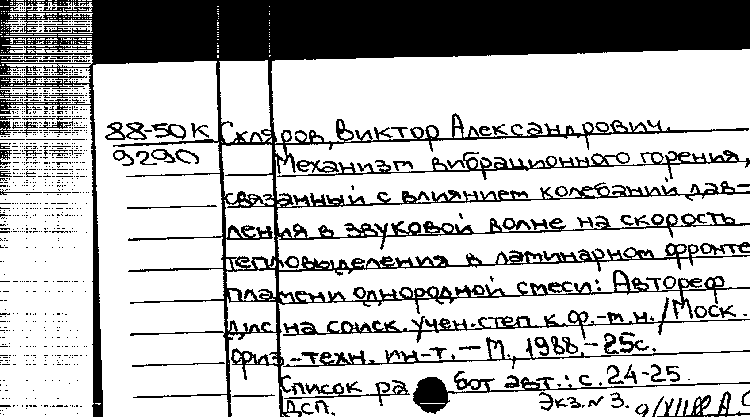 88-50К Скляров, Виктор Александрович.
9290 Механизм вибрационного горения,
связанный с влиянием колебаний дав-
ления в звуковой волне на скорость
тепловыделения в ламинарном фронте
пламени однородной смеси: Автореф
дис на соиск. учен. степ к.ф.-м.н. / Моск.
физ.-техн. ин-т. - М., 1988. - 25с.
Список ра бот авт.: с. 24-25
ДСП. Экз.N 3.